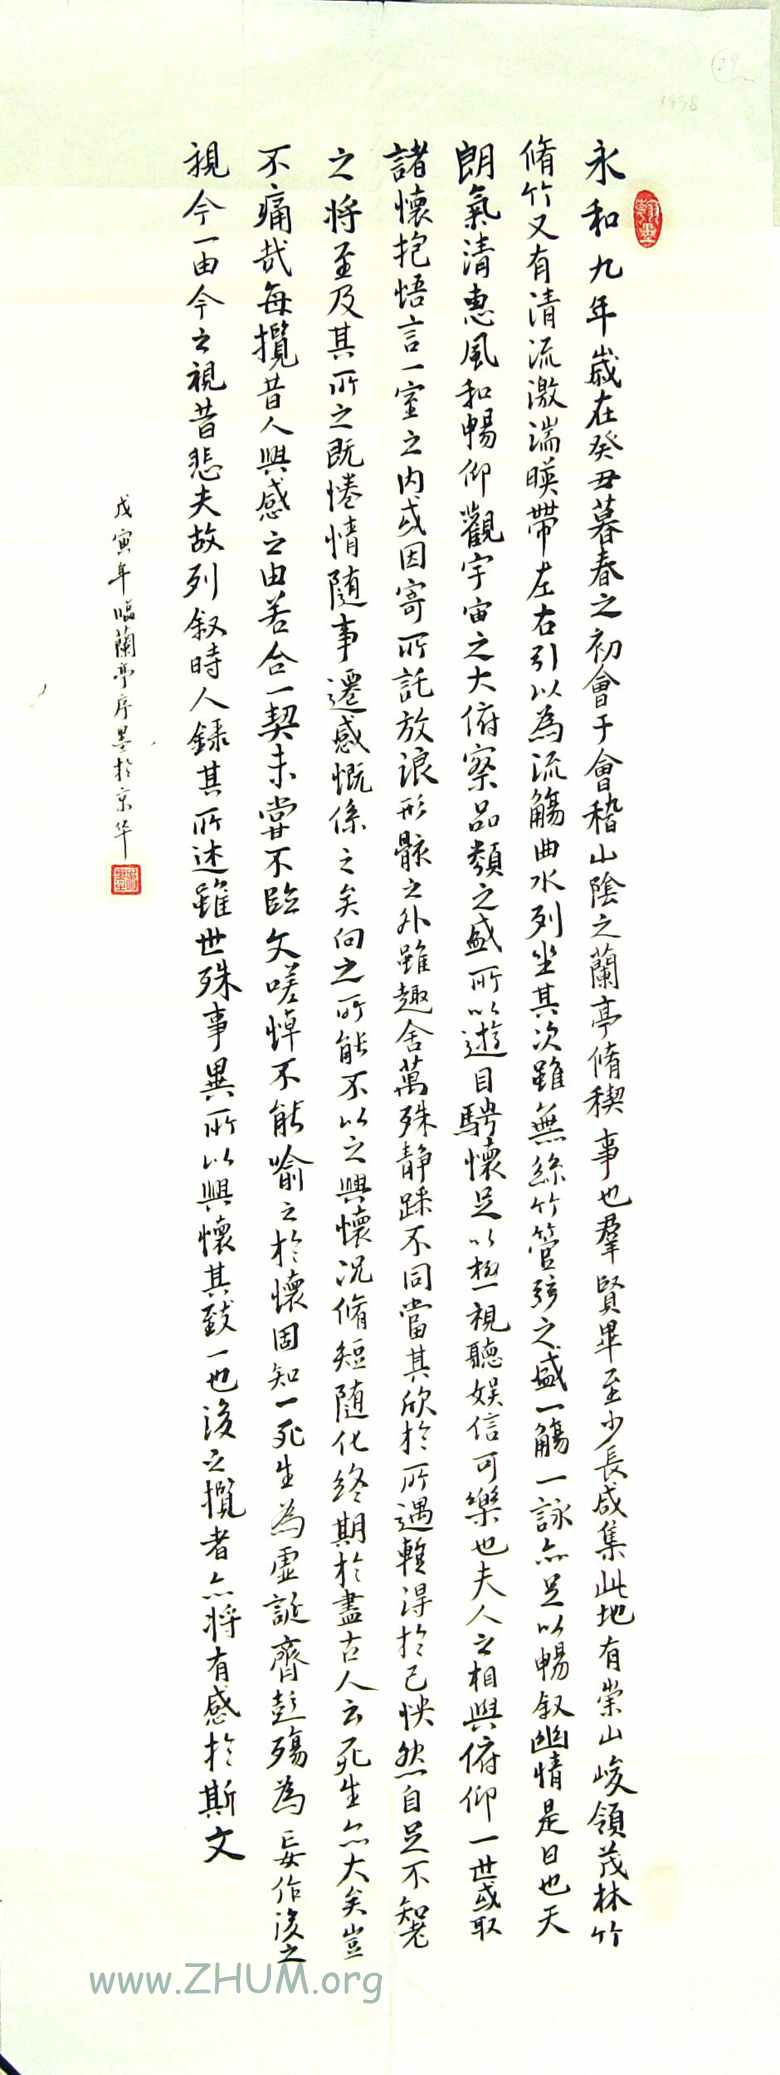 1998
永和九年歲在癸丑暮春之初會于會稽山陰之蘭亭脩稧事也羣賢畢至少長咸集此地有崇山峻領茂林竹
脩竹又有清流激湍暎帶左右引以為流觴曲水列坐其次雖無絲竹管弦之盛一觴一詠亦足以暢叙幽情是日也天
朗氣清惠風和暢仰觀宇宙之大俯察品類之盛所以遊目騁懷足以極視聽娱信可樂也夫人之相與俯仰一世或取
諸懷抱悟言一室之内或因寄所託放浪形骸之外雖趣舍萬殊静躁不同當其欣於所遇蹔得於己怏然自足不知老
之將至及其所之既惓情随事遷感慨係之矣向之所能不以之興懷况脩短随化終期於盡古人云死生亦大矣豈
不痛哉每攬昔人興感之由若合一契未甞不臨文嗟悼不能喻之於懷固知一死生為虛誕齊彭殤為妄作後之
視今一由今之視昔悲夫故列叙時人録其所述雖世殊事異所以興懷其致一也後之攬者亦將有感於斯文
戊寅年臨蘭亭序墨於京华
www.ZHUM.org